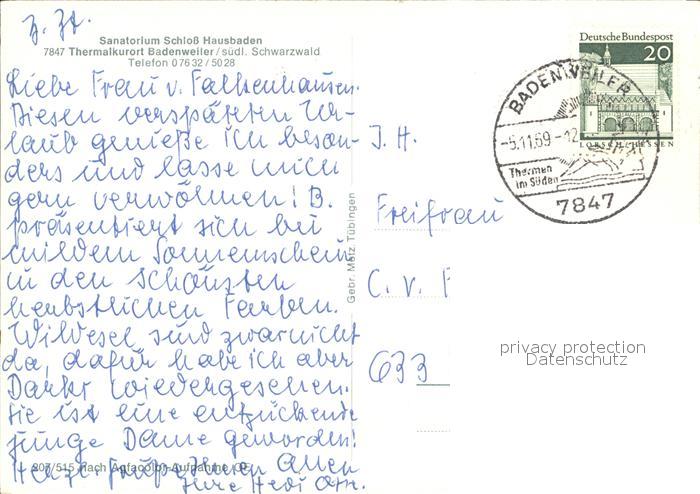 z. Zt.
Sanatorium Schloß Hausbaden
7847 Thermalkurort Badenweiler / südl. Schwarzwald
Telefon 07632/5028
Liebe Frau v. Falkenhausen.
Diesen verspäteten Ur-
laub genieße ich beson-
ders und lasse mich
gern verwöhnen! B.
präsentiert sich bei
mildem Sonnenschein
in den schönsten
herbstlichen Farben.
Wildesel sind zwar nicht
da, dafür habe ich aber
wiedergesehen.
Sie ist eine entzückende
junge Dame geworden!
Herzl. Grüße Ihnen Allen
Ihre Hedi
307/515 nach Agfacolor-Aufnahme
Gebr. Metz, Tübingen
I. H.
Freifrau
C. v. F
633
Deutsche Bundespost
20
LORSCH/HESSEN
BADENWEILER
-5.11.69-12
Thermen
im Süden
7847
privacy protection
Datenschutz